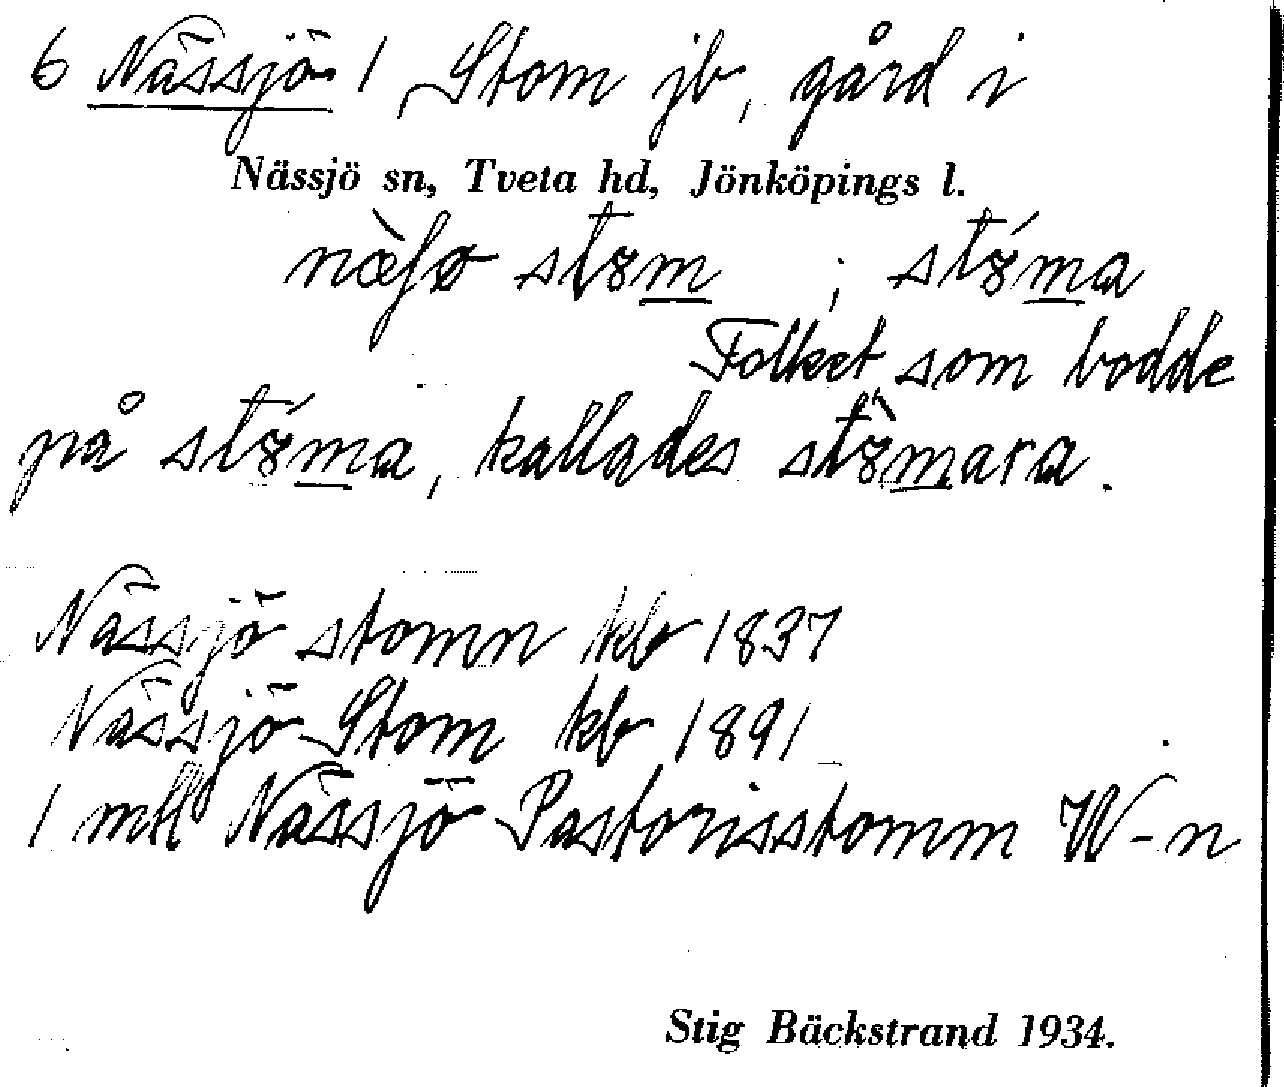 6 Nässjö 1, Stom jb, gård i
Nässjö sn, Tveta hd, Jönköpings l.
næ̀ʃø stɞm ; stɞ́ma
Folket som bodde
på stɞ́ma, kallades stɞ̀mara.
Nässjö stomn kb 1837
Nässjö Stom kb 1891
1 mtl Nässjö Pastorisstomm W-n
Stig Bäckstrand 1934.